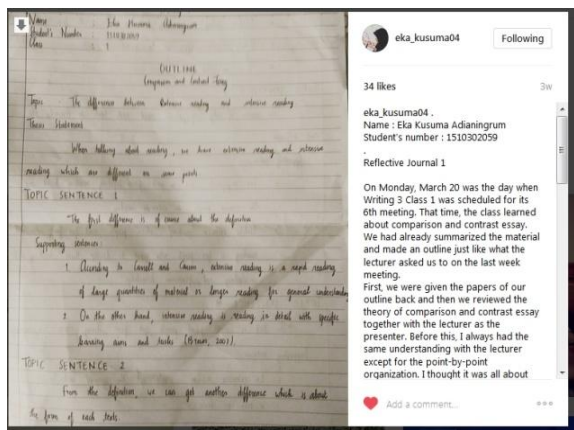 Name : Eka Kusuma Adianingrum
Student's Number : 1510302059
Class : 1
OUTLINE
Comparison and Contrast Essay
Topic : The difference between Extensive reading and intensive reading
Thesis Statement
When talking about reading, we have extensive reading and intensive
reading which are different on some points
TOPIC SENTENCE 1
The first difference is of course about the definition
Supporting sentences
1 According to and , extensive reading is a rapid reading
of large quantities of material or longer reading for general understanding
2 On the other hand, intensive reading is reading in detail with specific
learning aims and tasks (Brown, 2001).
TOPIC SENTENCE 2
From the definition, we can get another difference which is about
the form of each texts.
eka_kusuma04
Following
34 likes
3w
eka_kusuma04 .
Name : Eka Kusuma Adianingrum
Student's number : 1510302059
.
Reflective Journal 1
On Monday, March 20 was the day when
Writing 3 Class 1 was scheduled for its
6th meeting. That time, the class learned
about comparison and contrast essay.
We had already summarized the material
and made an outline just like what the
lecturer asked us to on the last week
meeting.
First, we were given the papers of our
outline back and then we reviewed the
theory of comparison and contrast essay
together with the lecturer as the
presenter. Before this, I always had the
same understanding with the lecturer
except for the point-by-point
organization. I thought it was all about
Add a comment...